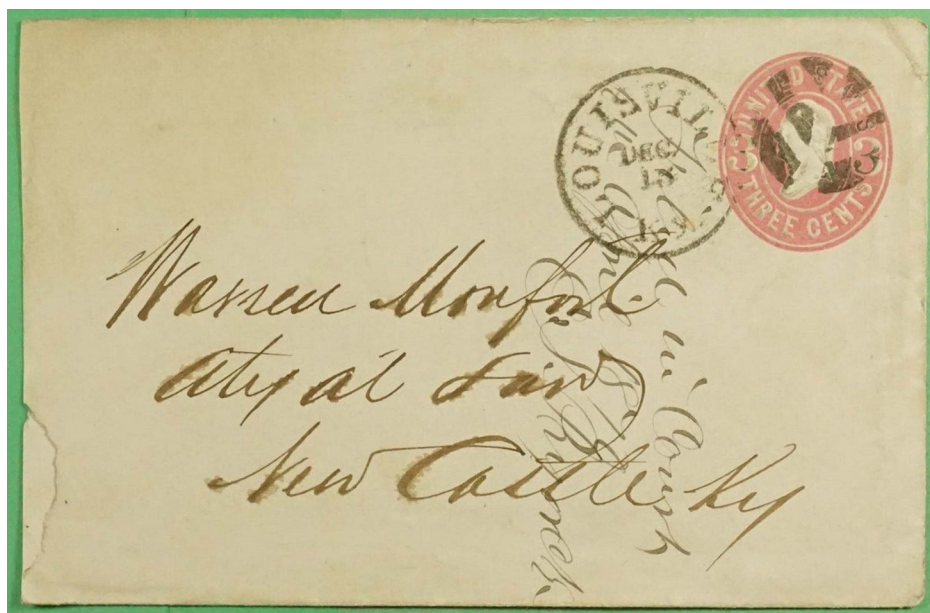 LOUISVILLE KY.
DEC
15
UNITED STATES
3 3
THREE CENTS
Warren Monfort
Aty at Law
New Castle Ky
in Court